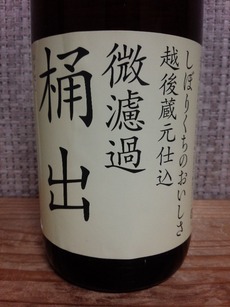 しぼりくちのおいしさ
越後蔵元仕込
微濾過
桶出